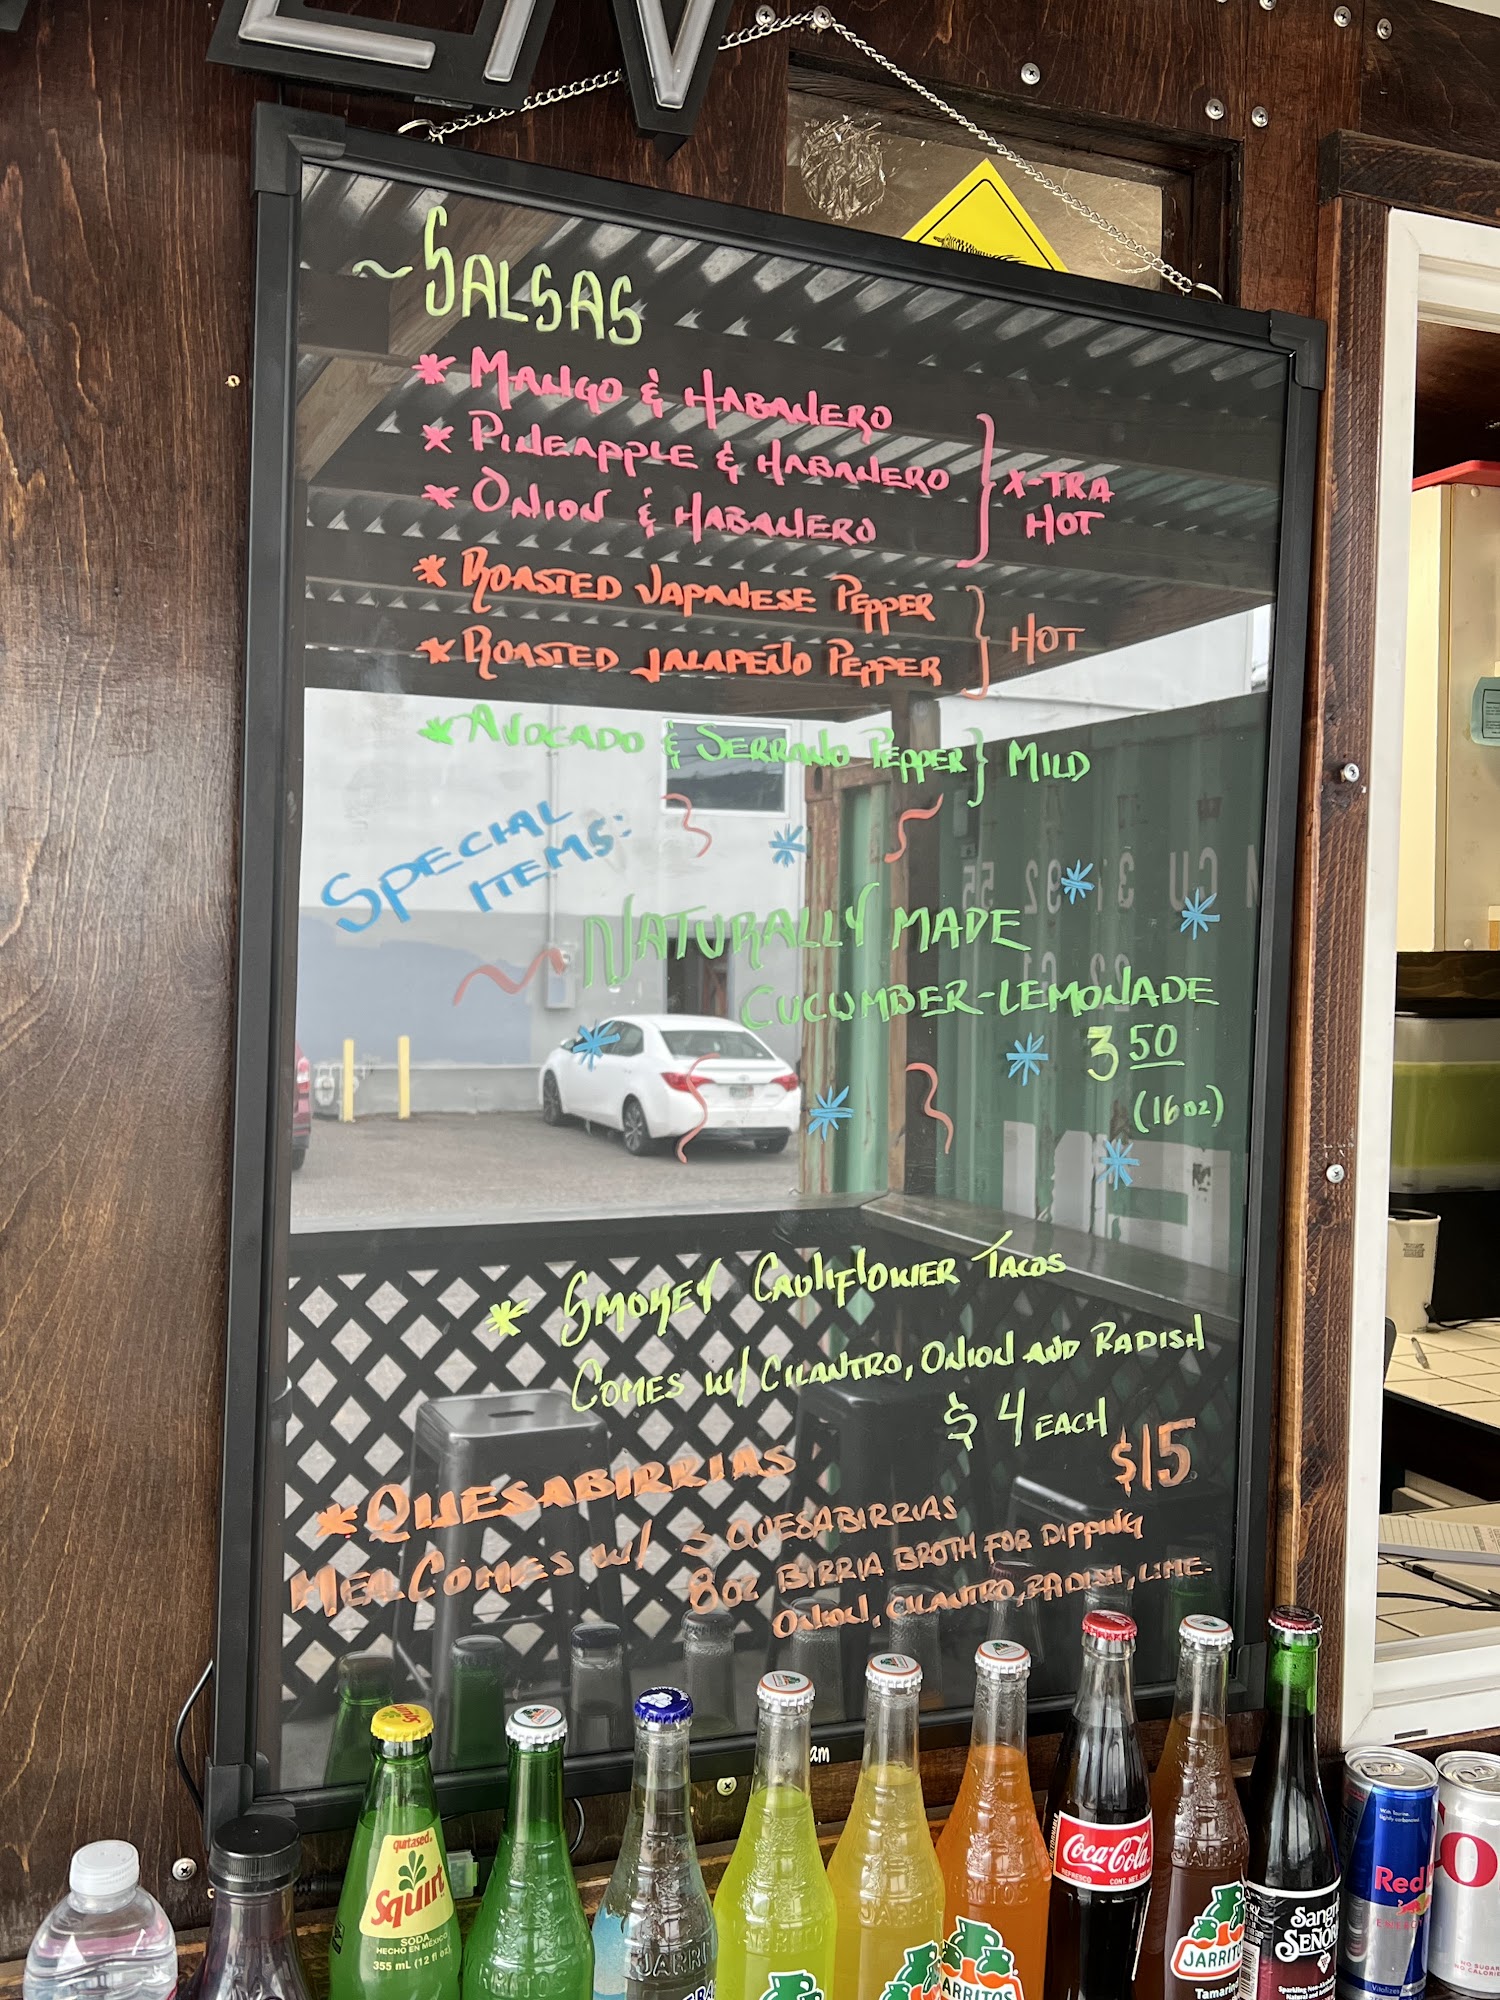 ~SALSAS
* MANGO & HABANERO
* PINEAPPLE & HABANERO
* ONION & HABANERO
} X-TRA
HOT
* ROASTED JAPANESE PEPPER
* ROASTED JALAPEÑO PEPPER
} HOT
* AVOCADO & SERRANO PEPPER } MILD
SPECIAL
ITEMS:
NATURALLY MADE
CUCUMBER-LEMONADE
3 50
(16 oz)
* SMOKEY CAULIFLOWER TACOS
COMES W/ CILANTRO, ONION AND RADISH
$ 4 EACH
* QUESABIRRIAS
$15
COMES W/
QUESABIRRIAS
8oz BIRRIA BROTH FOR DIPPING
ONION, CILANTRO, RADISH, LIME.
am
quitased.
Squirt
SODA
HECHO EN MÉXICO
355 mL (12 fl oz)
JARRI
Coca-Cola
REFRESCO
JARRITO
Tamari
ARRITOS
Sangr
SEÑOR
Red